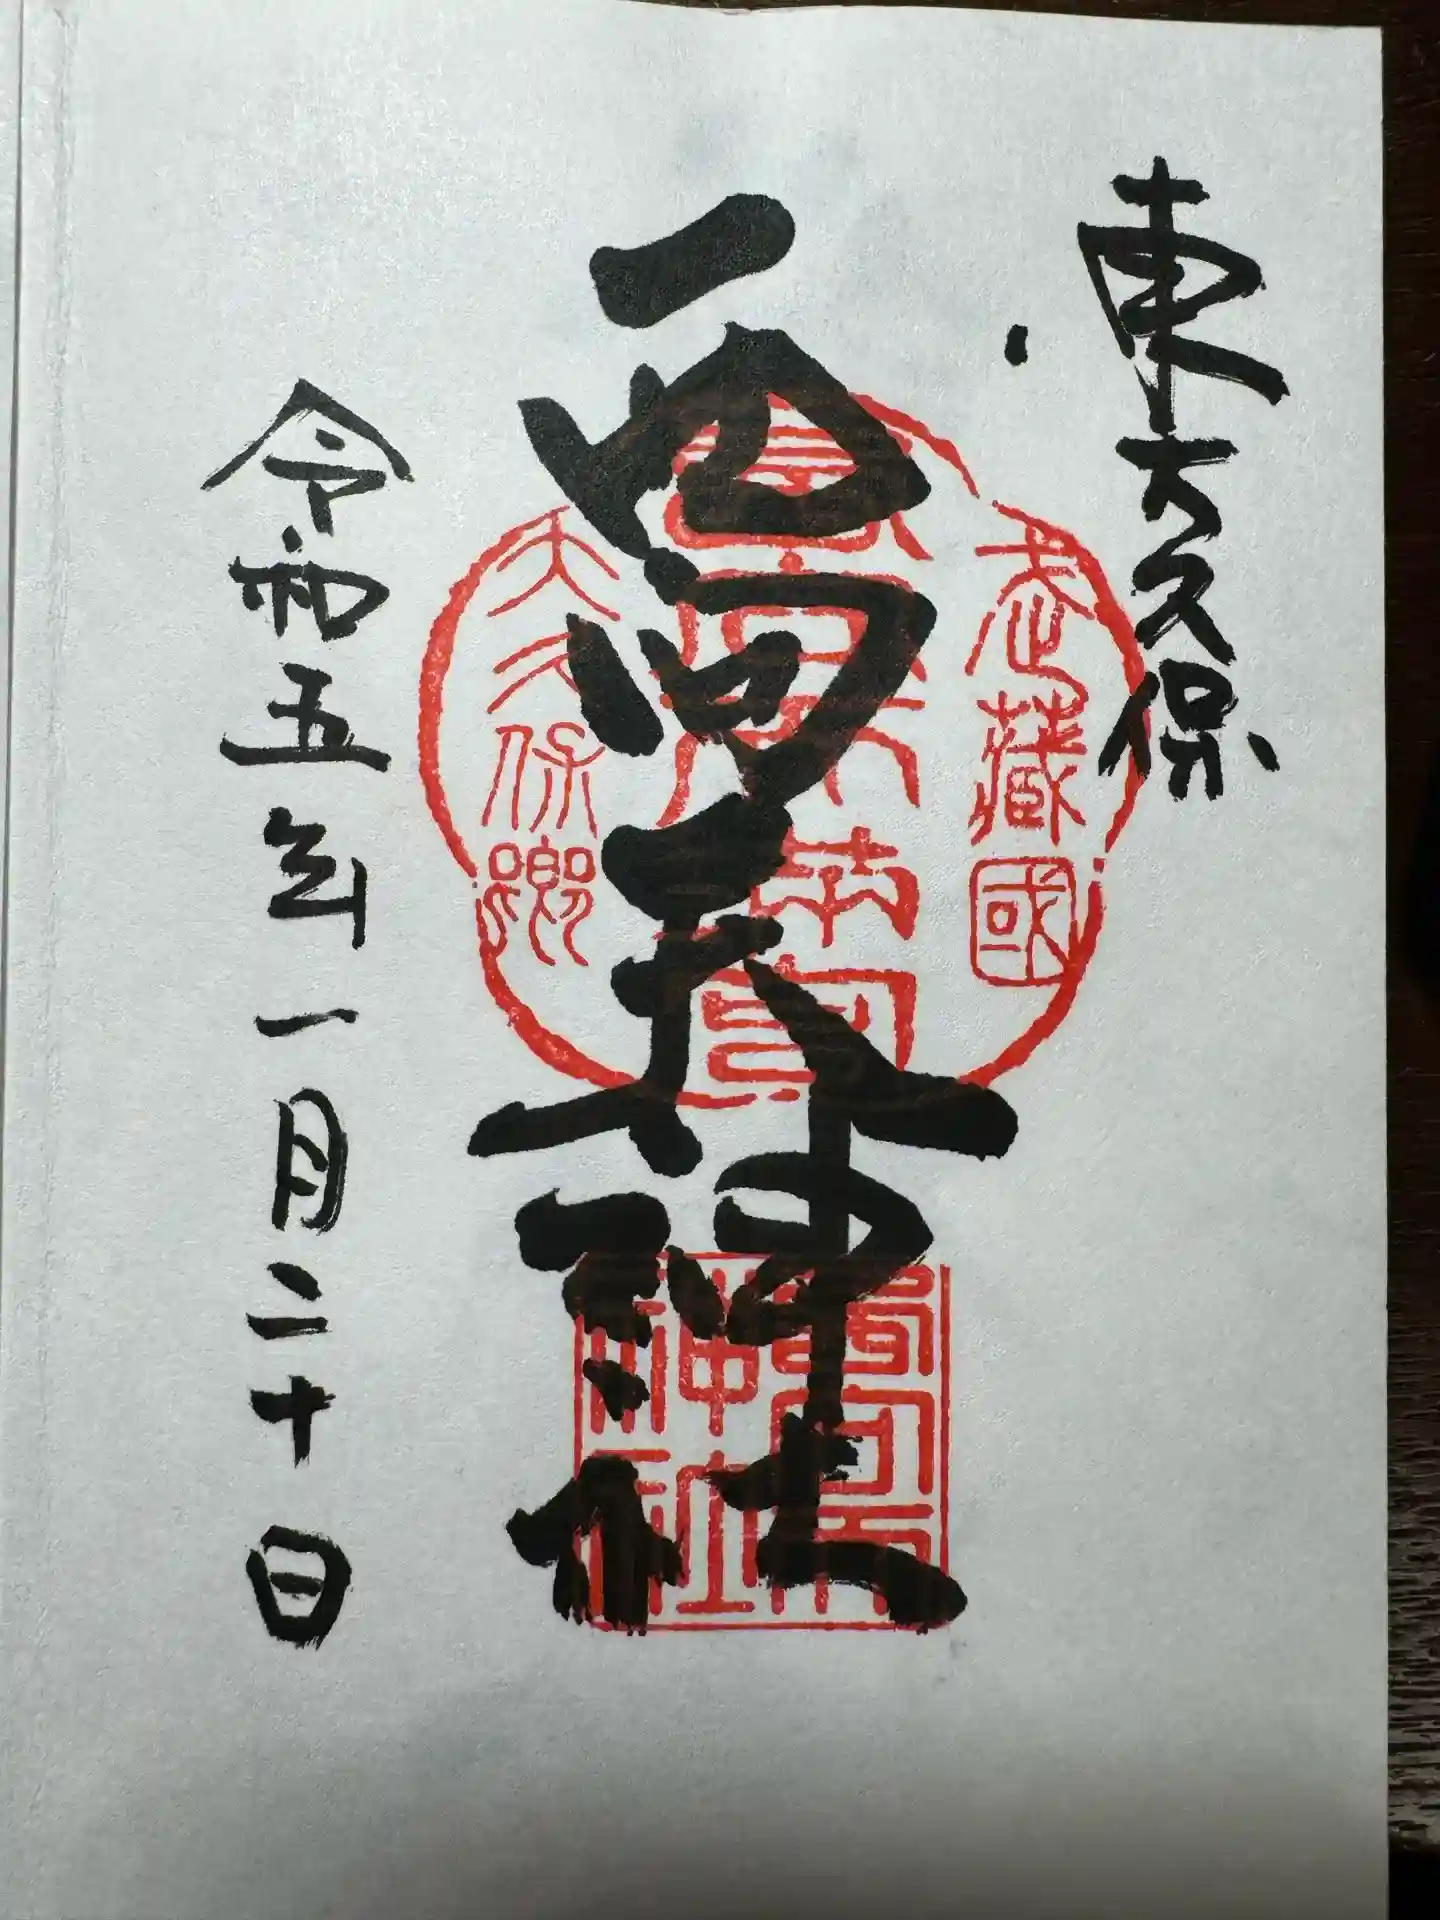 東大久保
西向天神社
令和五年一月二十日
武藏國
大久保鄕
西向天
神社